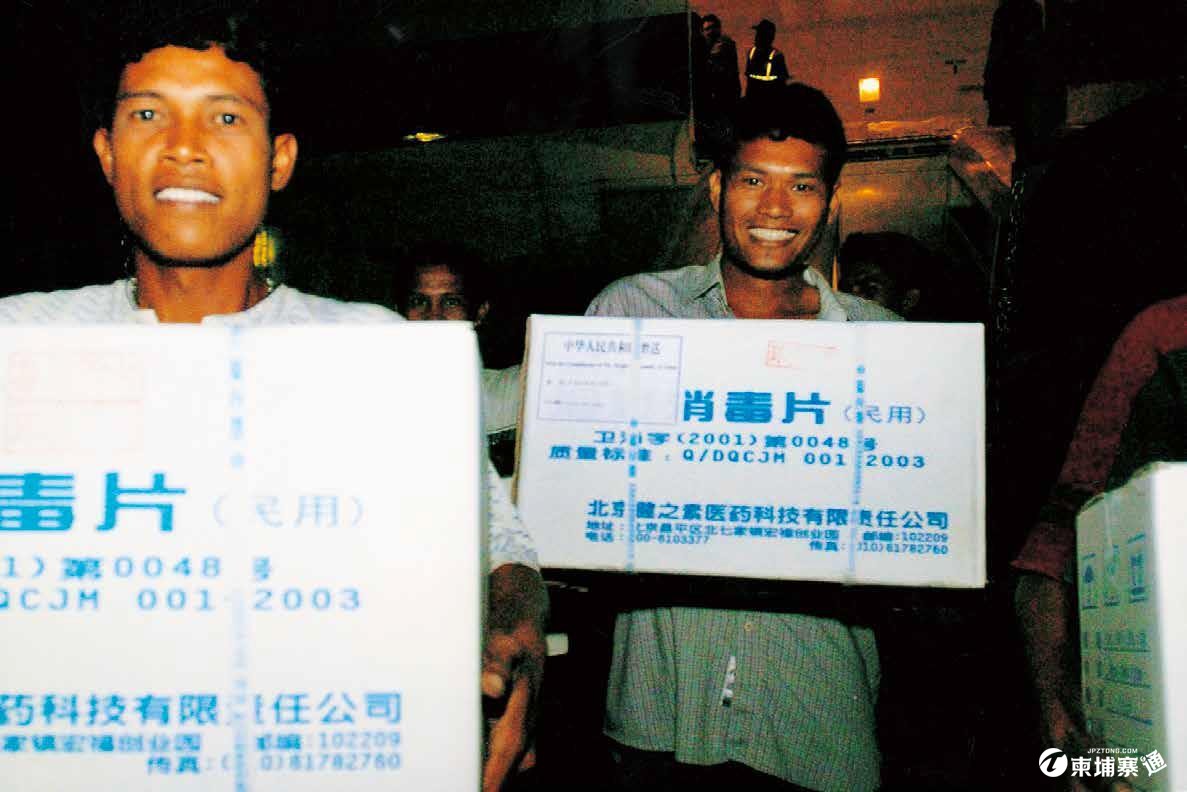 毒片(民用)
1)第0048号
QCJM 001-2003
药科技有限责任公司
家镇宏福创业园 邮编:102209
传真: 0)81782760
中华人民共和 赠送
消毒片(民用)
卫消字(2001)第0048号
质量标准:Q/DQCJM 001-2003
北京健之素医药科技有限责任公司
地址:北京昌平区北七家镇宏福创业园 邮编:102209
电话: 00-8103377 传真: 010)81782760
JPZTONG.COM
柬埔寨通